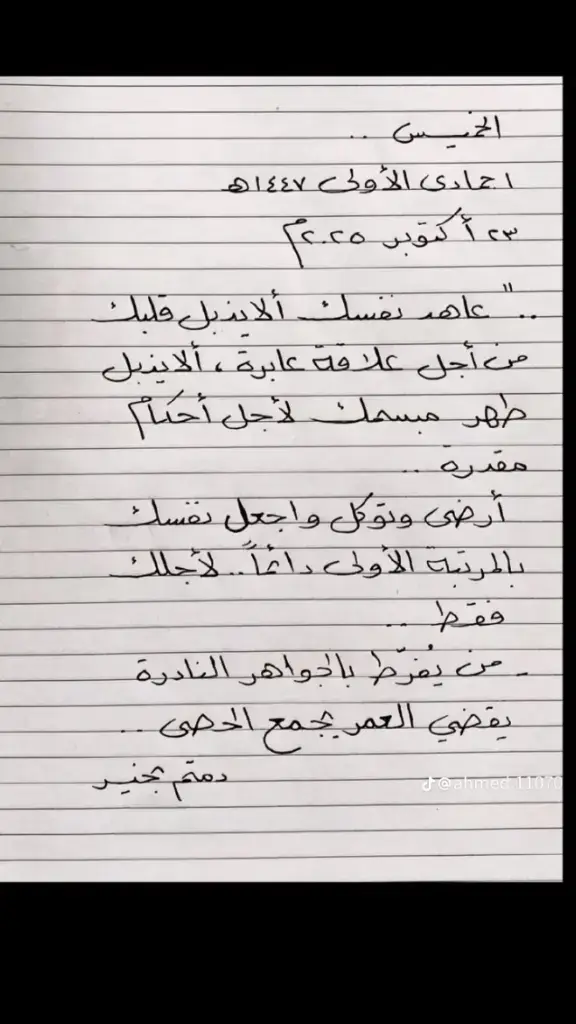 الخميس ..
١ جمادى الأولى ١٤٤٧هـ
٢٣ أكتوبر ٢٠٢٥م
.." عاهد نفسك ألايذبل قلبك
من أجل علاقة عابرة ، ألايذبل
طهر مبسمك لأجل أحكام
مقدرة ..
أرضى وتوكل واجعل نفسك
بالمرتبة الأولى دائماً .. لأجلك
فقط ..
- من يُفرّط بالجواهر النادرة
يقضي العمر بجمع الحصى ..
دمتم بخير
@ahmed.11070